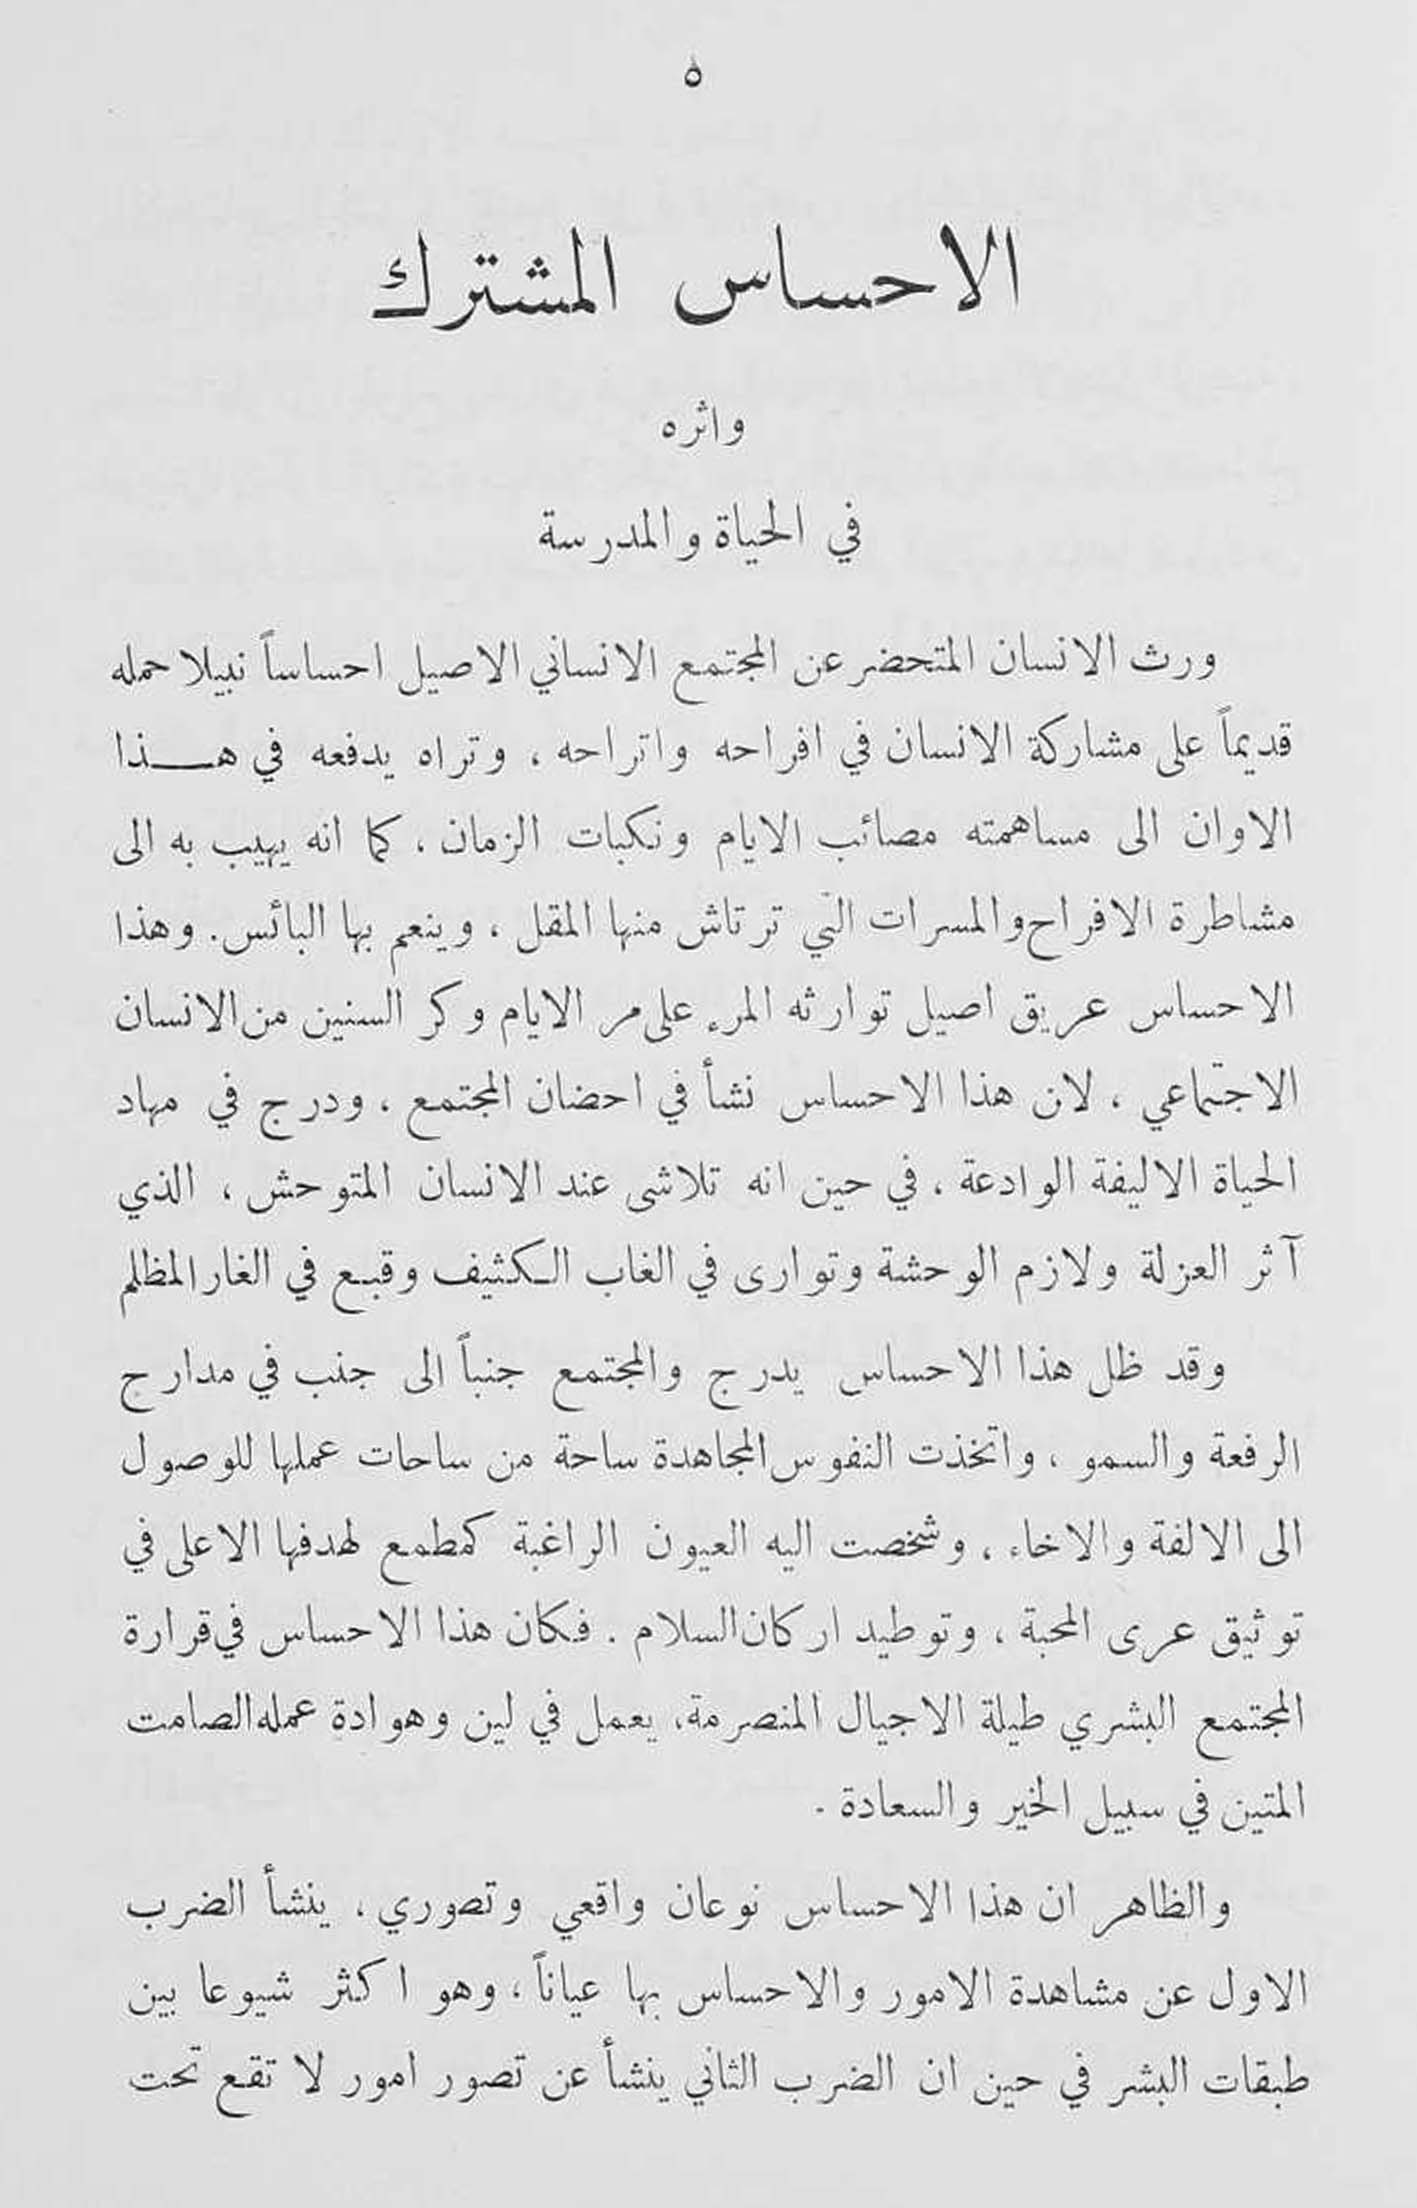 ٥
الاحساس المشترك
واثره
في الحياة والمدرسة
ورث الانسان المتحضر عن المجتمع الانساني الاصيل احساساً نبيلا حمله
قديماً على مشاركة الانسان في افراحه واتراحه ، وتراه يدفعه في هـــذا
الاوان الى مساهمته مصائب الايام ونكبات الزمان ، كما انه يهيب به الى
مشاطرة الافراح والمسرات التي ترتاش منها المقل ، وينعم بها البائس . وهذا
الاحساس عريق اصيل توارثه المرء على مر الايام وكر السنين من الانسان
الاجتماعي ، لان هذا الاحساس نشأ في احضان المجتمع ، ودرج في مهاد
الحياة الاليفة الوادعة ، في حين انه تلاشى عند الانسان المتوحش ، الذي
آثر العزلة ولازم الوحشة وتوارى في الغاب الكثيف وقبع في الغار المظلم
وقد ظل هذا الاحساس يدرج والمجتمع جنباً الى جنب في مدارج
الرفعة والسمو ، واتخذت النفوس المجاهدة ساحة من ساحات عملها للوصول
الى الالفة والاخاء ، وشخصت اليه العيون الراغبة كمطمع لهدفها الاعلى في
توثيق عرى المحبة ، وتوطيد اركان السلام . فكان هذا الاحساس في قرارة
المجتمع البشري طيلة الاجيال المنصرمة ، يعمل في لين وهوادة عمله الصامت
المتين في سبيل الخير والسعادة .
والظاهر ان هذا الاحساس نوعان واقعي وتصوري ، ينشأ الضرب
الاول عن مشاهدة الامور والاحساس بها عياناً ، وهو اكثر شيوعا بين
طبقات البشر في حين ان الضرب الثاني ينشأ عن تصور امور لا تقع تحت